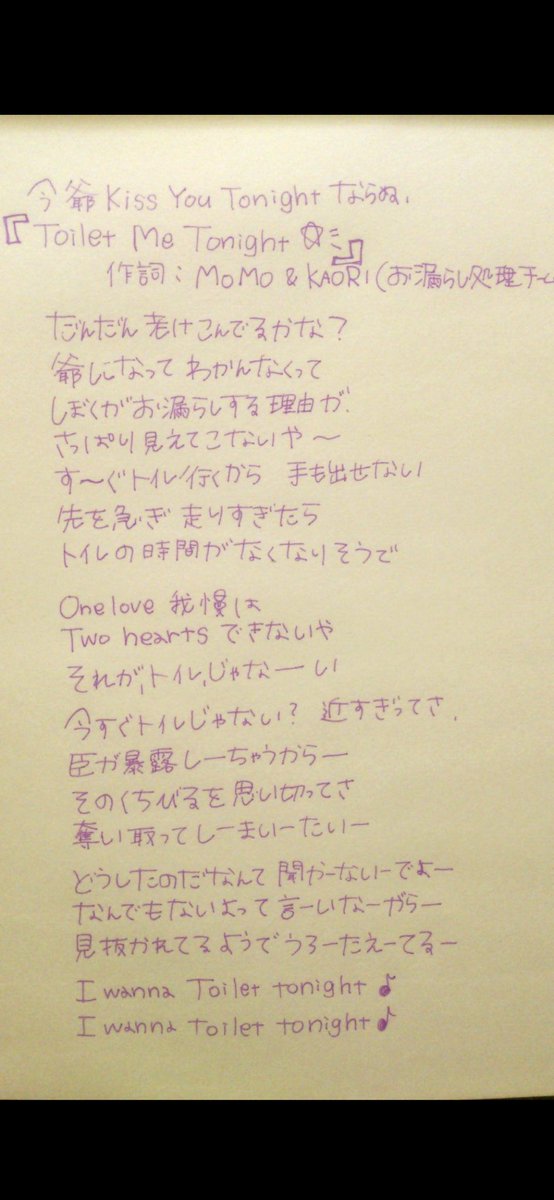 今爺 Kiss You Tonight ならぬ、
『Toilet Me Tonight ☆ミ』
作詞：MOMO & KAORI(お漏らし処理チーム
だんだん老けこんでるかな？
爺じになって わかんなくって
ぼくがお漏らしする理由が、
さっぱり見えてこないや〜
す〜ぐトイレ行くから 手も出せない
先を急ぎ 走りすぎたら
トイレの時間がなくなりそうで
One love 我慢は
Two hearts できないや
それが、トイレ、じゃなーい
今すぐトイレじゃない？ 近すぎってさ、
臣が暴露しーちゃうからー
そのくちびるを思い切ってさ
奪い取ってしーまいーたいー
どうしたのだなんて 聞かーないーでよー
なんでもないよって 言ーいなーがらー
見抜かれてるようでうろーたえーてるー
I wanna Toilet tonight ♪
I wanna toilet tonight ♪